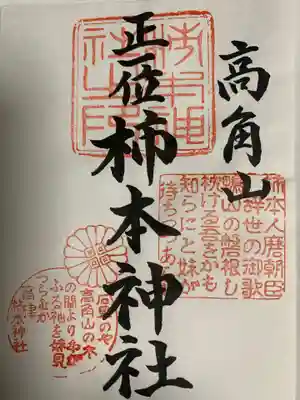 高角山
正一位 柿本神社
柿本人麿朝臣
辞世の御歌
鴨山の磐根し
枕ける吾をかも
知らにと妹が
待ちつつあ
のや
高角山の木
の間より我が
ふる袖を妹見
つらむか
高津
柿本神社